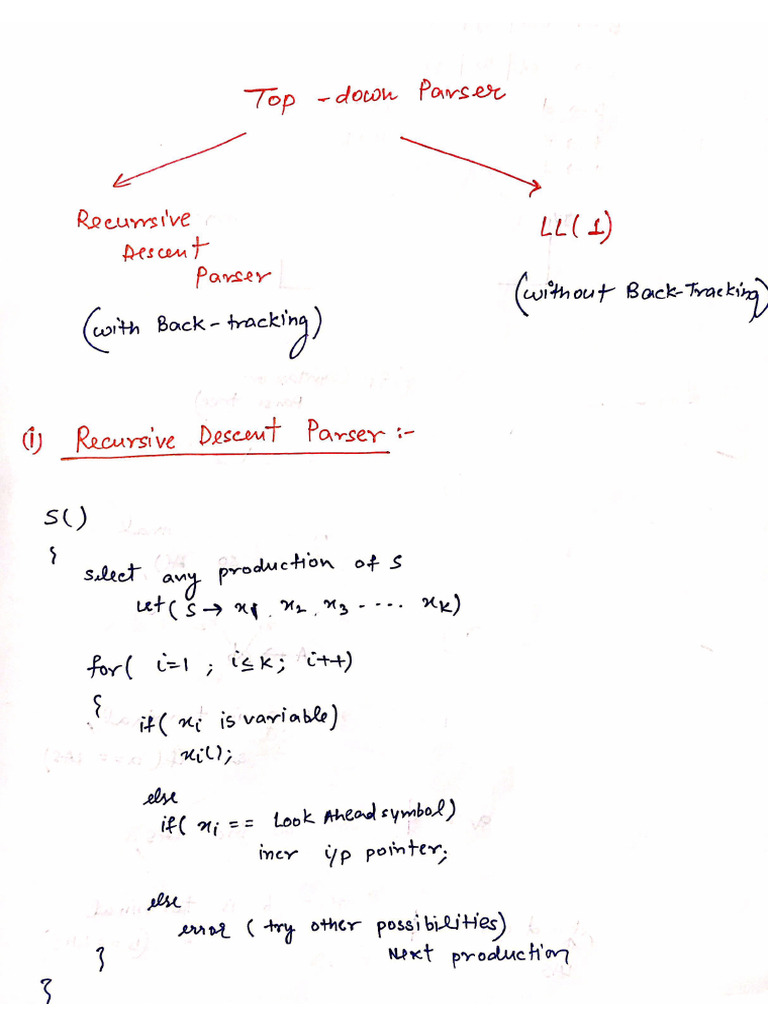 Top-down Parser
Recurrsive
Descent
Parser
(with Back-tracking)
LL(1)
(without Back-Tracking)
(1) Recursive Descent Parser :-
S()
{
select any production of S
Let( S → x1. x2. x3 - .... xk)
for( i=1 ; i≤k; i++)
{
if( xi is variable)
xi();
else
if( xi == Look Ahead symbol)
incr i/p pointer;
else
error ( try other possibilities)
Next production
}
}